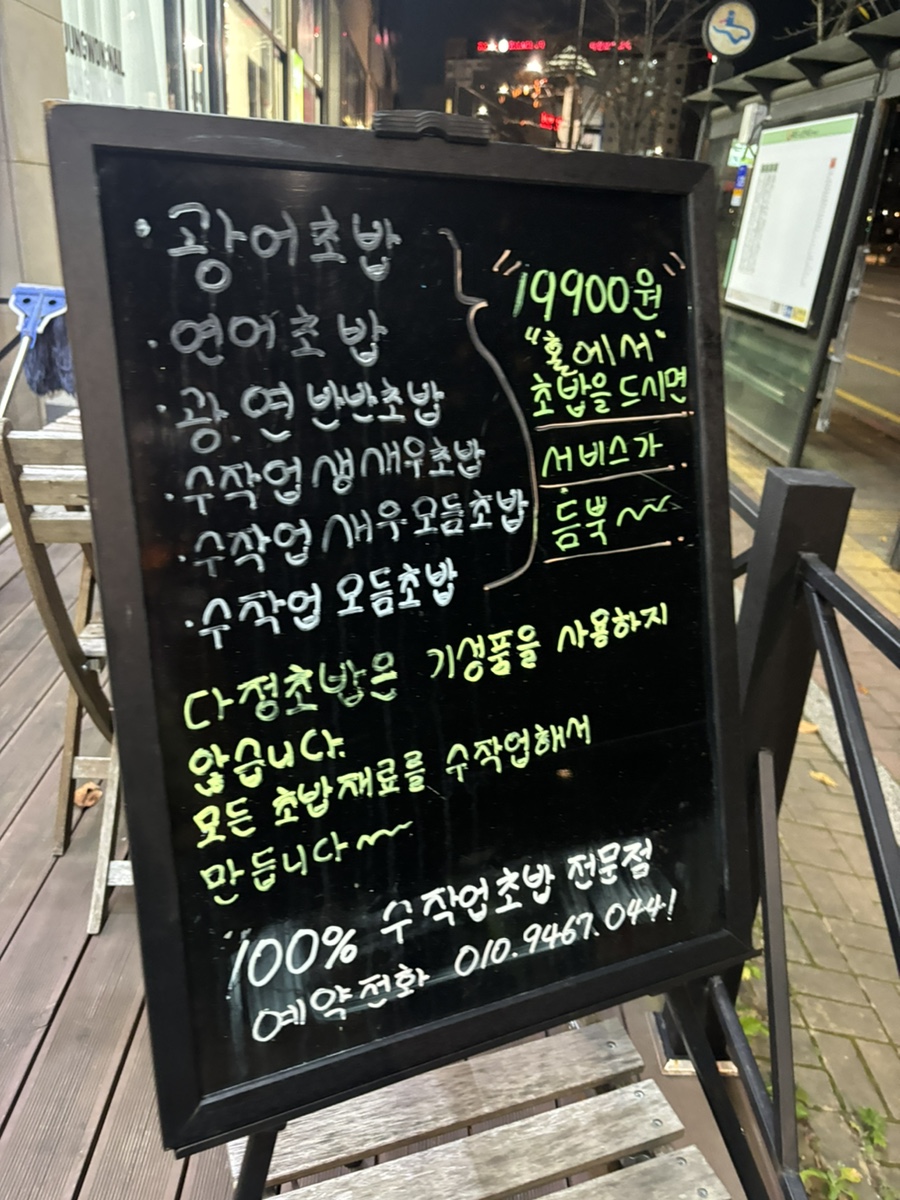 · 광어초밥
· 연어초밥
· 광.연 반반초밥
· 수작업 생새우초밥
· 수작업 새우모듬초밥
· 수작업 모듬초밥
"19900원"
"홀에서"
초밥을 드시면
서비스가
듬뿍~
다정초밥은 기성품을 사용하지
않습니다.
모든 초밥재료를 수작업해서
만듭니다~
100% 수작업초밥 전문점
예약전화 010.9467.0441